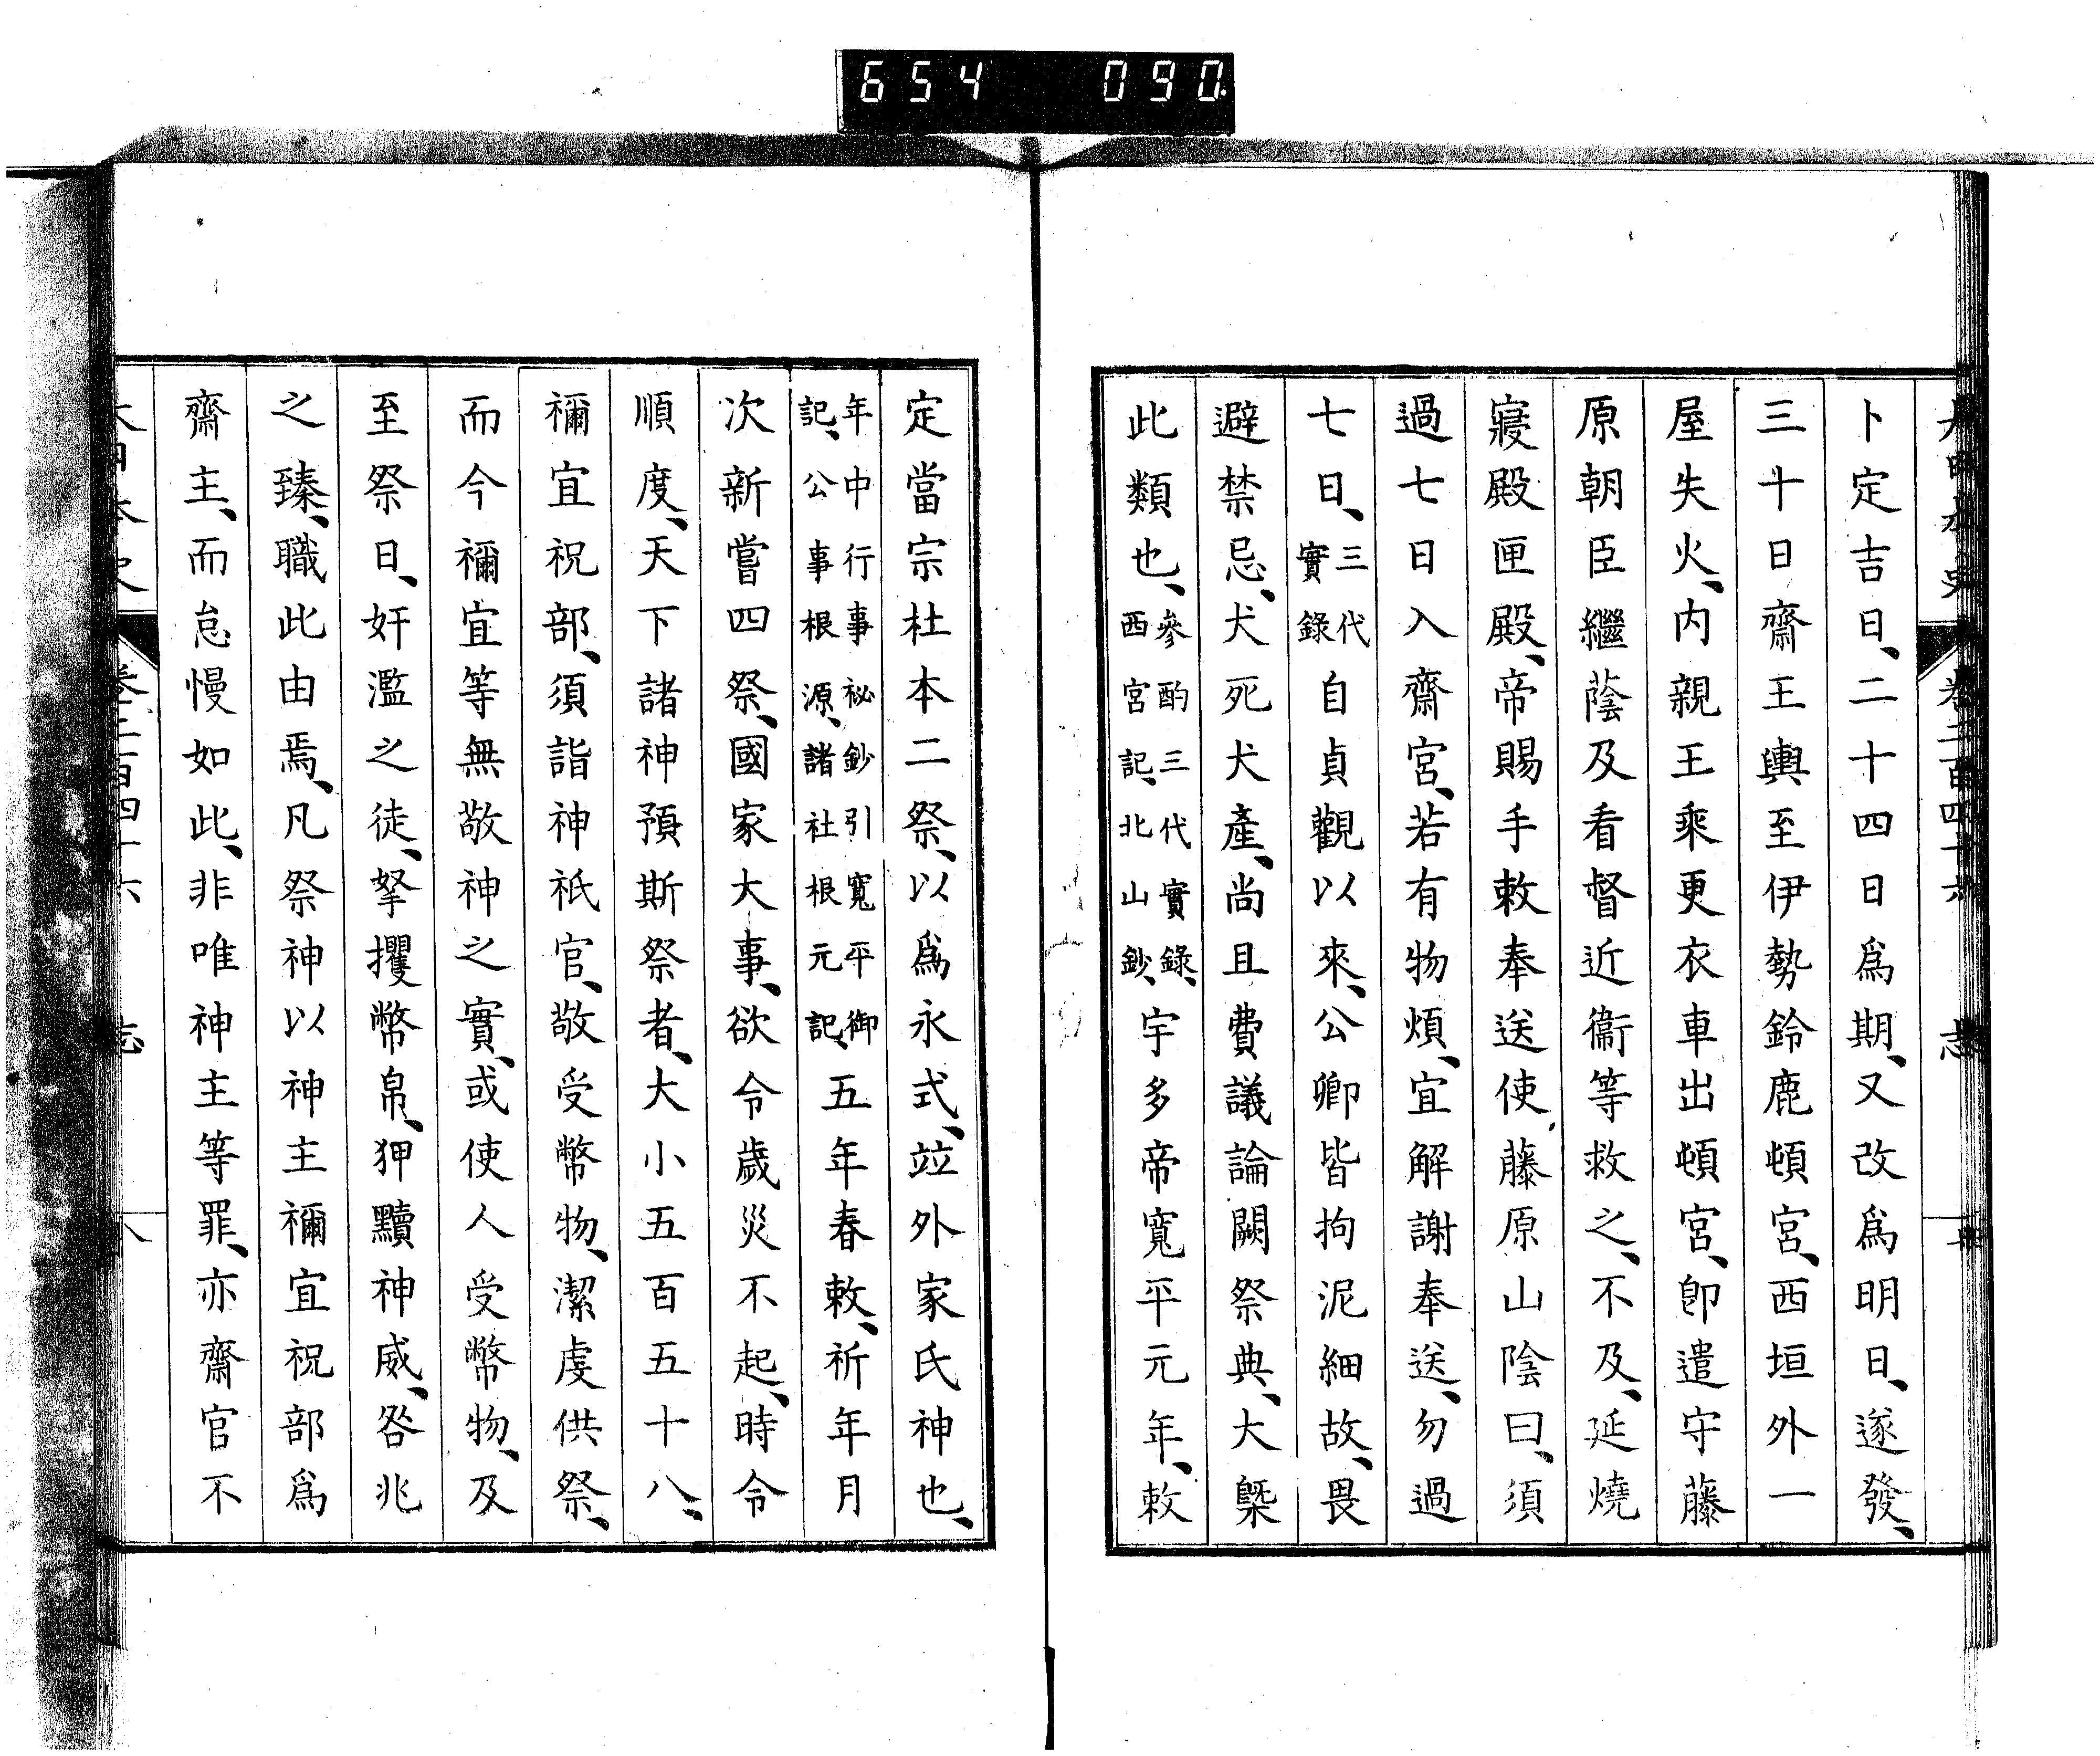 654 090
大日本史 卷二百四十六 志
卜定吉日、二十四日爲期、又改爲明日、遂發、
三十日齋王輿至伊勢鈴鹿頓宮、西垣外一
屋失火、内親王乘更衣車出頓宮、卽遣守藤
原朝臣繼蔭及看督近衞等救之、不及、延燒
寢殿匣殿、帝賜手敕奉送使藤原山陰曰、須
過七日入齋宮、若有物煩、宜解謝奉送、勿過
七日、三代實錄自貞觀以來、公卿皆拘泥細故、畏
避禁忌、犬死犬產、尚且費議論闕祭典、大槩
此類也、參酌三代實錄、西宮記、北山鈔、宇多帝寬平元年、敕
定當宗杜本二祭、以爲永式、竝外家氏神也、
年中行事祕鈔引寬平御記、公事根源、諸社根元記、五年春敕、祈年月
次新嘗四祭、國家大事、欲令歲災不起、時令
順度、天下諸神預斯祭者、大小五百五十八、
禰宜祝部、須詣神祇官、敬受幣物、潔虔供祭、
而今禰宜等無敬神之實、或使人受幣物、及
至祭日、奸濫之徒、拏攫幣帛、狎黷神威、咎兆
之臻、職此由焉、凡祭神以神主禰宜祝部爲
齋主、而怠慢如此、非唯神主等罪、亦齋官不
大日本史 卷二百四十六 志 八